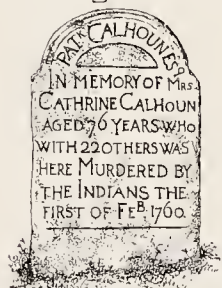 PATK CALHOUN ESQ
IN MEMORY OF MRS.
CATHRINE CALHOUN
AGED 76 YEARS WHO
WITH 22 OTHERS WAS
HERE MURDERED BY
THE INDIANS THE
FIRST OF FEB. 1760.